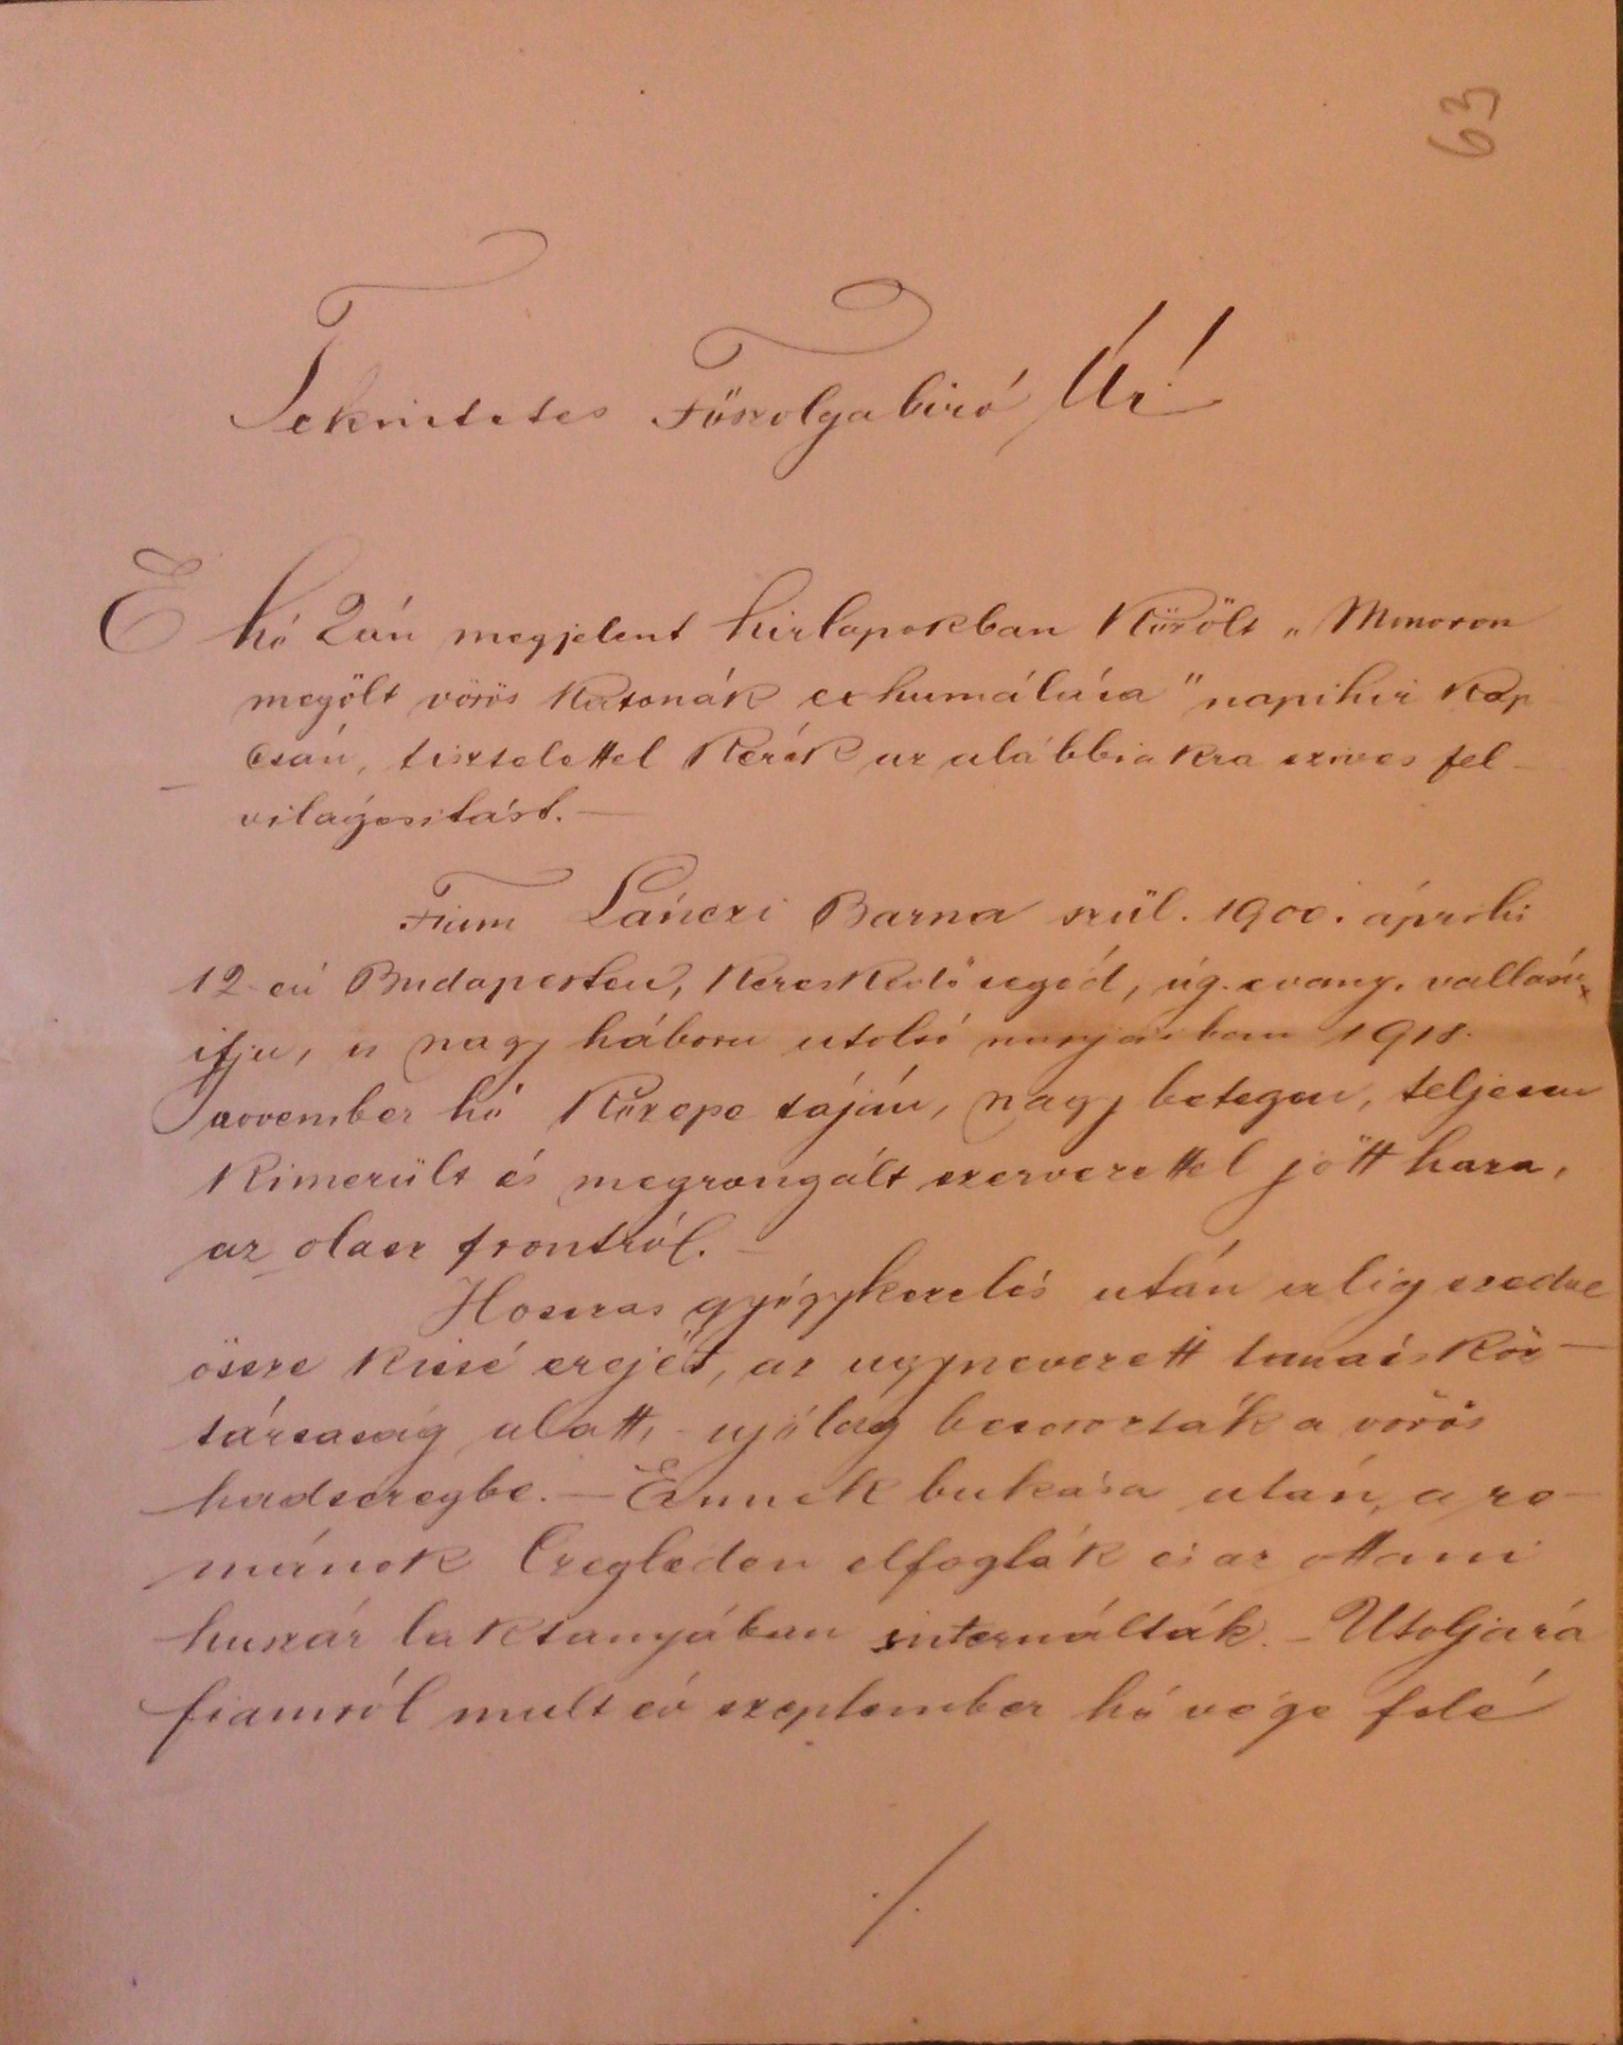 63
Tekintetes Főszolgabiró Úr!
E hó 2án megjelent hirlapokban Közölt „Monoron
megölt vörös Katonák exhumálása" napihir Kap
csán, tisztelettel Kérek az alábbiakra szives fel-
világositást. —
Fiam Lánczi Barna szül. 1900. áprili
12-én Budapesten, Kereskedő segéd, ág. evang. vallású
ifju, a nagy háboru utolsó napjaiban 1918.
november hó Közepe táján, nagy betegen, teljesen
Kimerült és megrongált szervezettel jött haza,
az olasz frontról. —
Hosszas gyógykezelés után alig szedve
össze Kissé erejét, az ugynevezett tanács Köz-
társaság alatt, ujólag besorozták a vörös
hadseregbe. — Ennek bukása után, a ro-
mánok Czegléden elfogták és az ottani
huszár laktanyában internálták. — Utoljára
fiamról mult év szeptember hó vége felé
./.